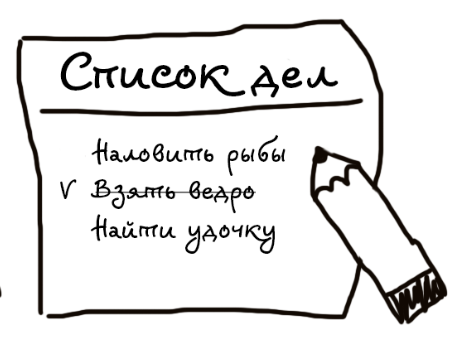 Список дел
Наловить рыбы
V Взять ведро
Найти удочку